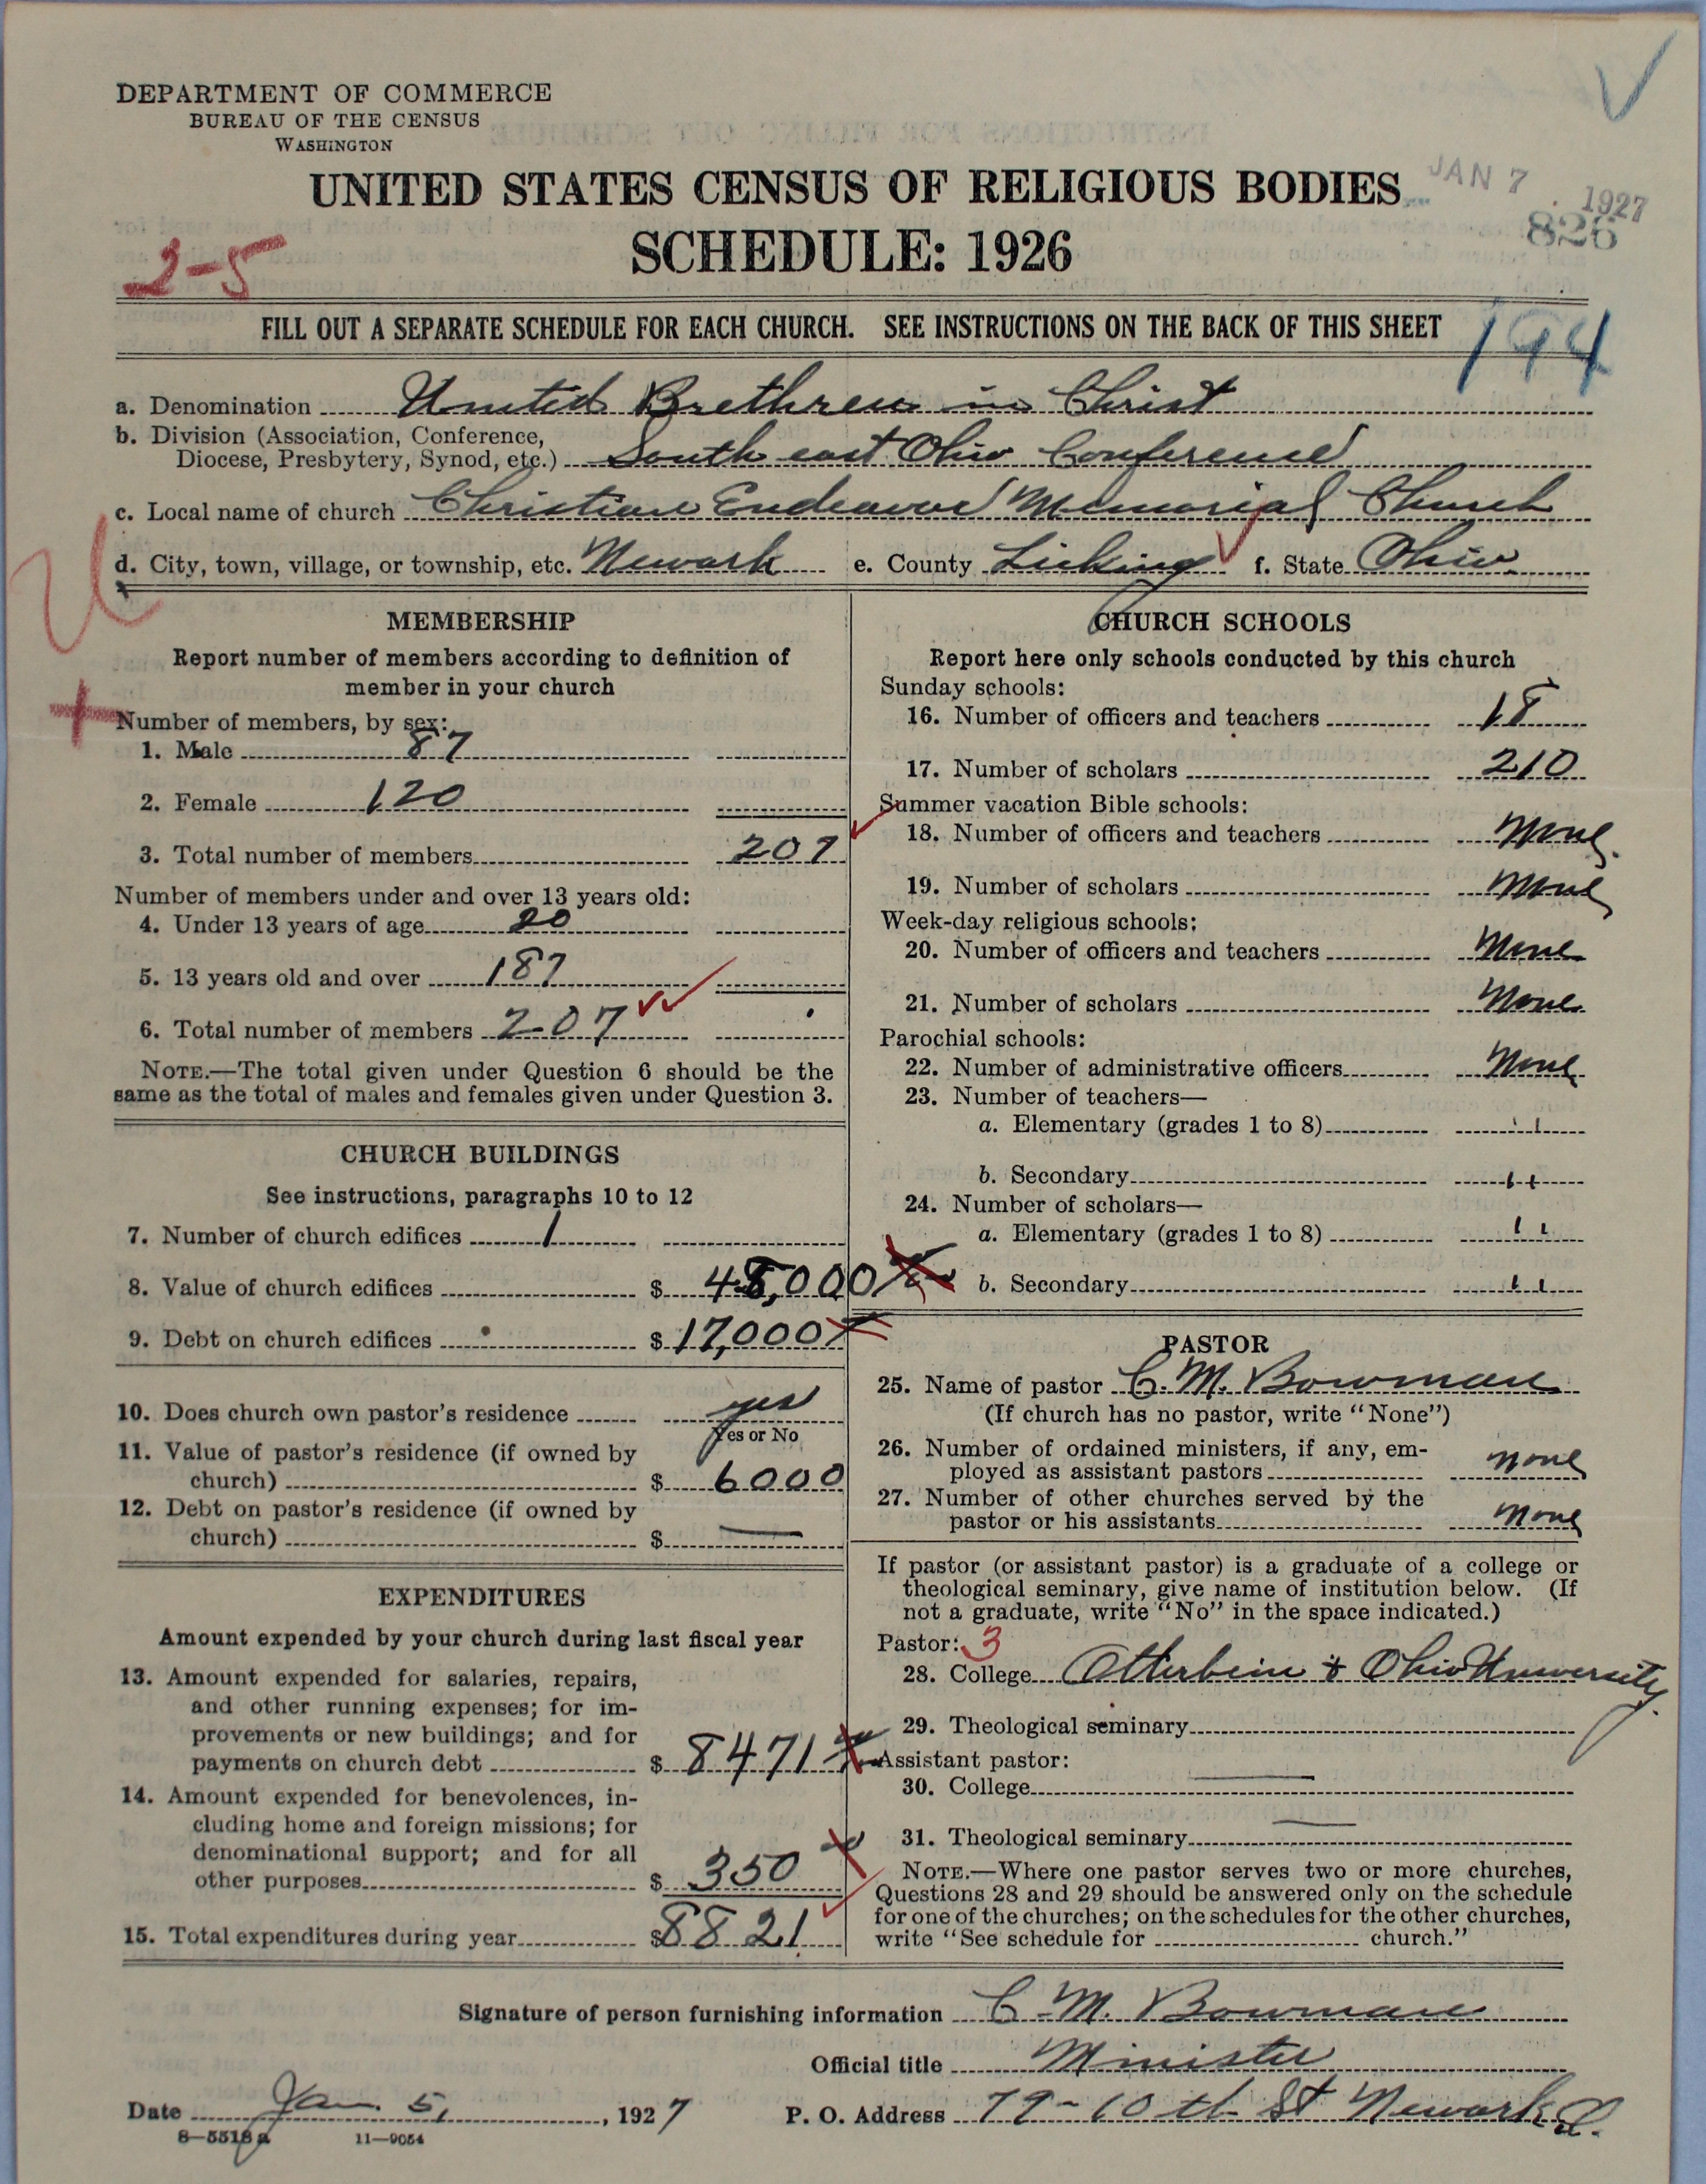 DEPARTMENT OF COMMERCE
BUREAU OF THE CENSUS
WASHINGTON
UNITED STATES CENSUS OF RELIGIOUS BODIES
JAN 7 1927
826
SCHEDULE: 1926
2-5
FILL OUT A SEPARATE SCHEDULE FOR EACH CHURCH. SEE INSTRUCTIONS ON THE BACK OF THIS SHEET
194
a. Denomination United Brethren in Christ
b. Division (Association, Conference,
Diocese, Presbytery, Synod, etc.) South east Ohio Conference
c. Local name of church Christian Endeavor Memorial Church
d. City, town, village, or township, etc. Newark e. County Licking f. State Ohio
MEMBERSHIP
Report number of members according to definition of
member in your church
Number of members, by sex:
1. Male 87
2. Female 120
3. Total number of members 207
Number of members under and over 13 years old:
4. Under 13 years of age 20
5. 13 years old and over 187
6. Total number of members 207
NOTE.—The total given under Question 6 should be the
same as the total of males and females given under Question 3.
CHURCH BUILDINGS
See instructions, paragraphs 10 to 12
7. Number of church edifices 1
8. Value of church edifices $ 48,000
9. Debt on church edifices $ 17,000
10. Does church own pastor's residence yes
Yes or No
11. Value of pastor's residence (if owned by
church) $ 6000
12. Debt on pastor's residence (if owned by
church) $ —
EXPENDITURES
Amount expended by your church during last fiscal year
13. Amount expended for salaries, repairs,
and other running expenses; for im-
provements or new buildings; and for
payments on church debt $ 8471
14. Amount expended for benevolences, in-
cluding home and foreign missions; for
denominational support; and for all
other purposes $ 350
15. Total expenditures during year $ 8821
CHURCH SCHOOLS
Report here only schools conducted by this church
Sunday schools:
16. Number of officers and teachers 18
17. Number of scholars 210
Summer vacation Bible schools:
18. Number of officers and teachers None
19. Number of scholars None
Week-day religious schools:
20. Number of officers and teachers None
21. Number of scholars None
Parochial schools:
22. Number of administrative officers None
23. Number of teachers—
a. Elementary (grades 1 to 8) "
b. Secondary "
24. Number of scholars—
a. Elementary (grades 1 to 8) "
b. Secondary "
PASTOR
25. Name of pastor C. M. Bowman
(If church has no pastor, write "None")
26. Number of ordained ministers, if any, em-
ployed as assistant pastors none
27. Number of other churches served by the
pastor or his assistants none
If pastor (or assistant pastor) is a graduate of a college or
theological seminary, give name of institution below. (If
not a graduate, write "No" in the space indicated.)
Pastor: 3
28. College Otterbein & Ohio University.
29. Theological seminary
Assistant pastor:
30. College —
31. Theological seminary —
NOTE.—Where one pastor serves two or more churches,
Questions 28 and 29 should be answered only on the schedule
for one of the churches; on the schedules for the other churches,
write "See schedule for church."
Signature of person furnishing information C. M. Bowman
Official title Minister
Date Jan. 5, 1927 P. O. Address 79-10th St Newark, O.
8-5518a 11-9054